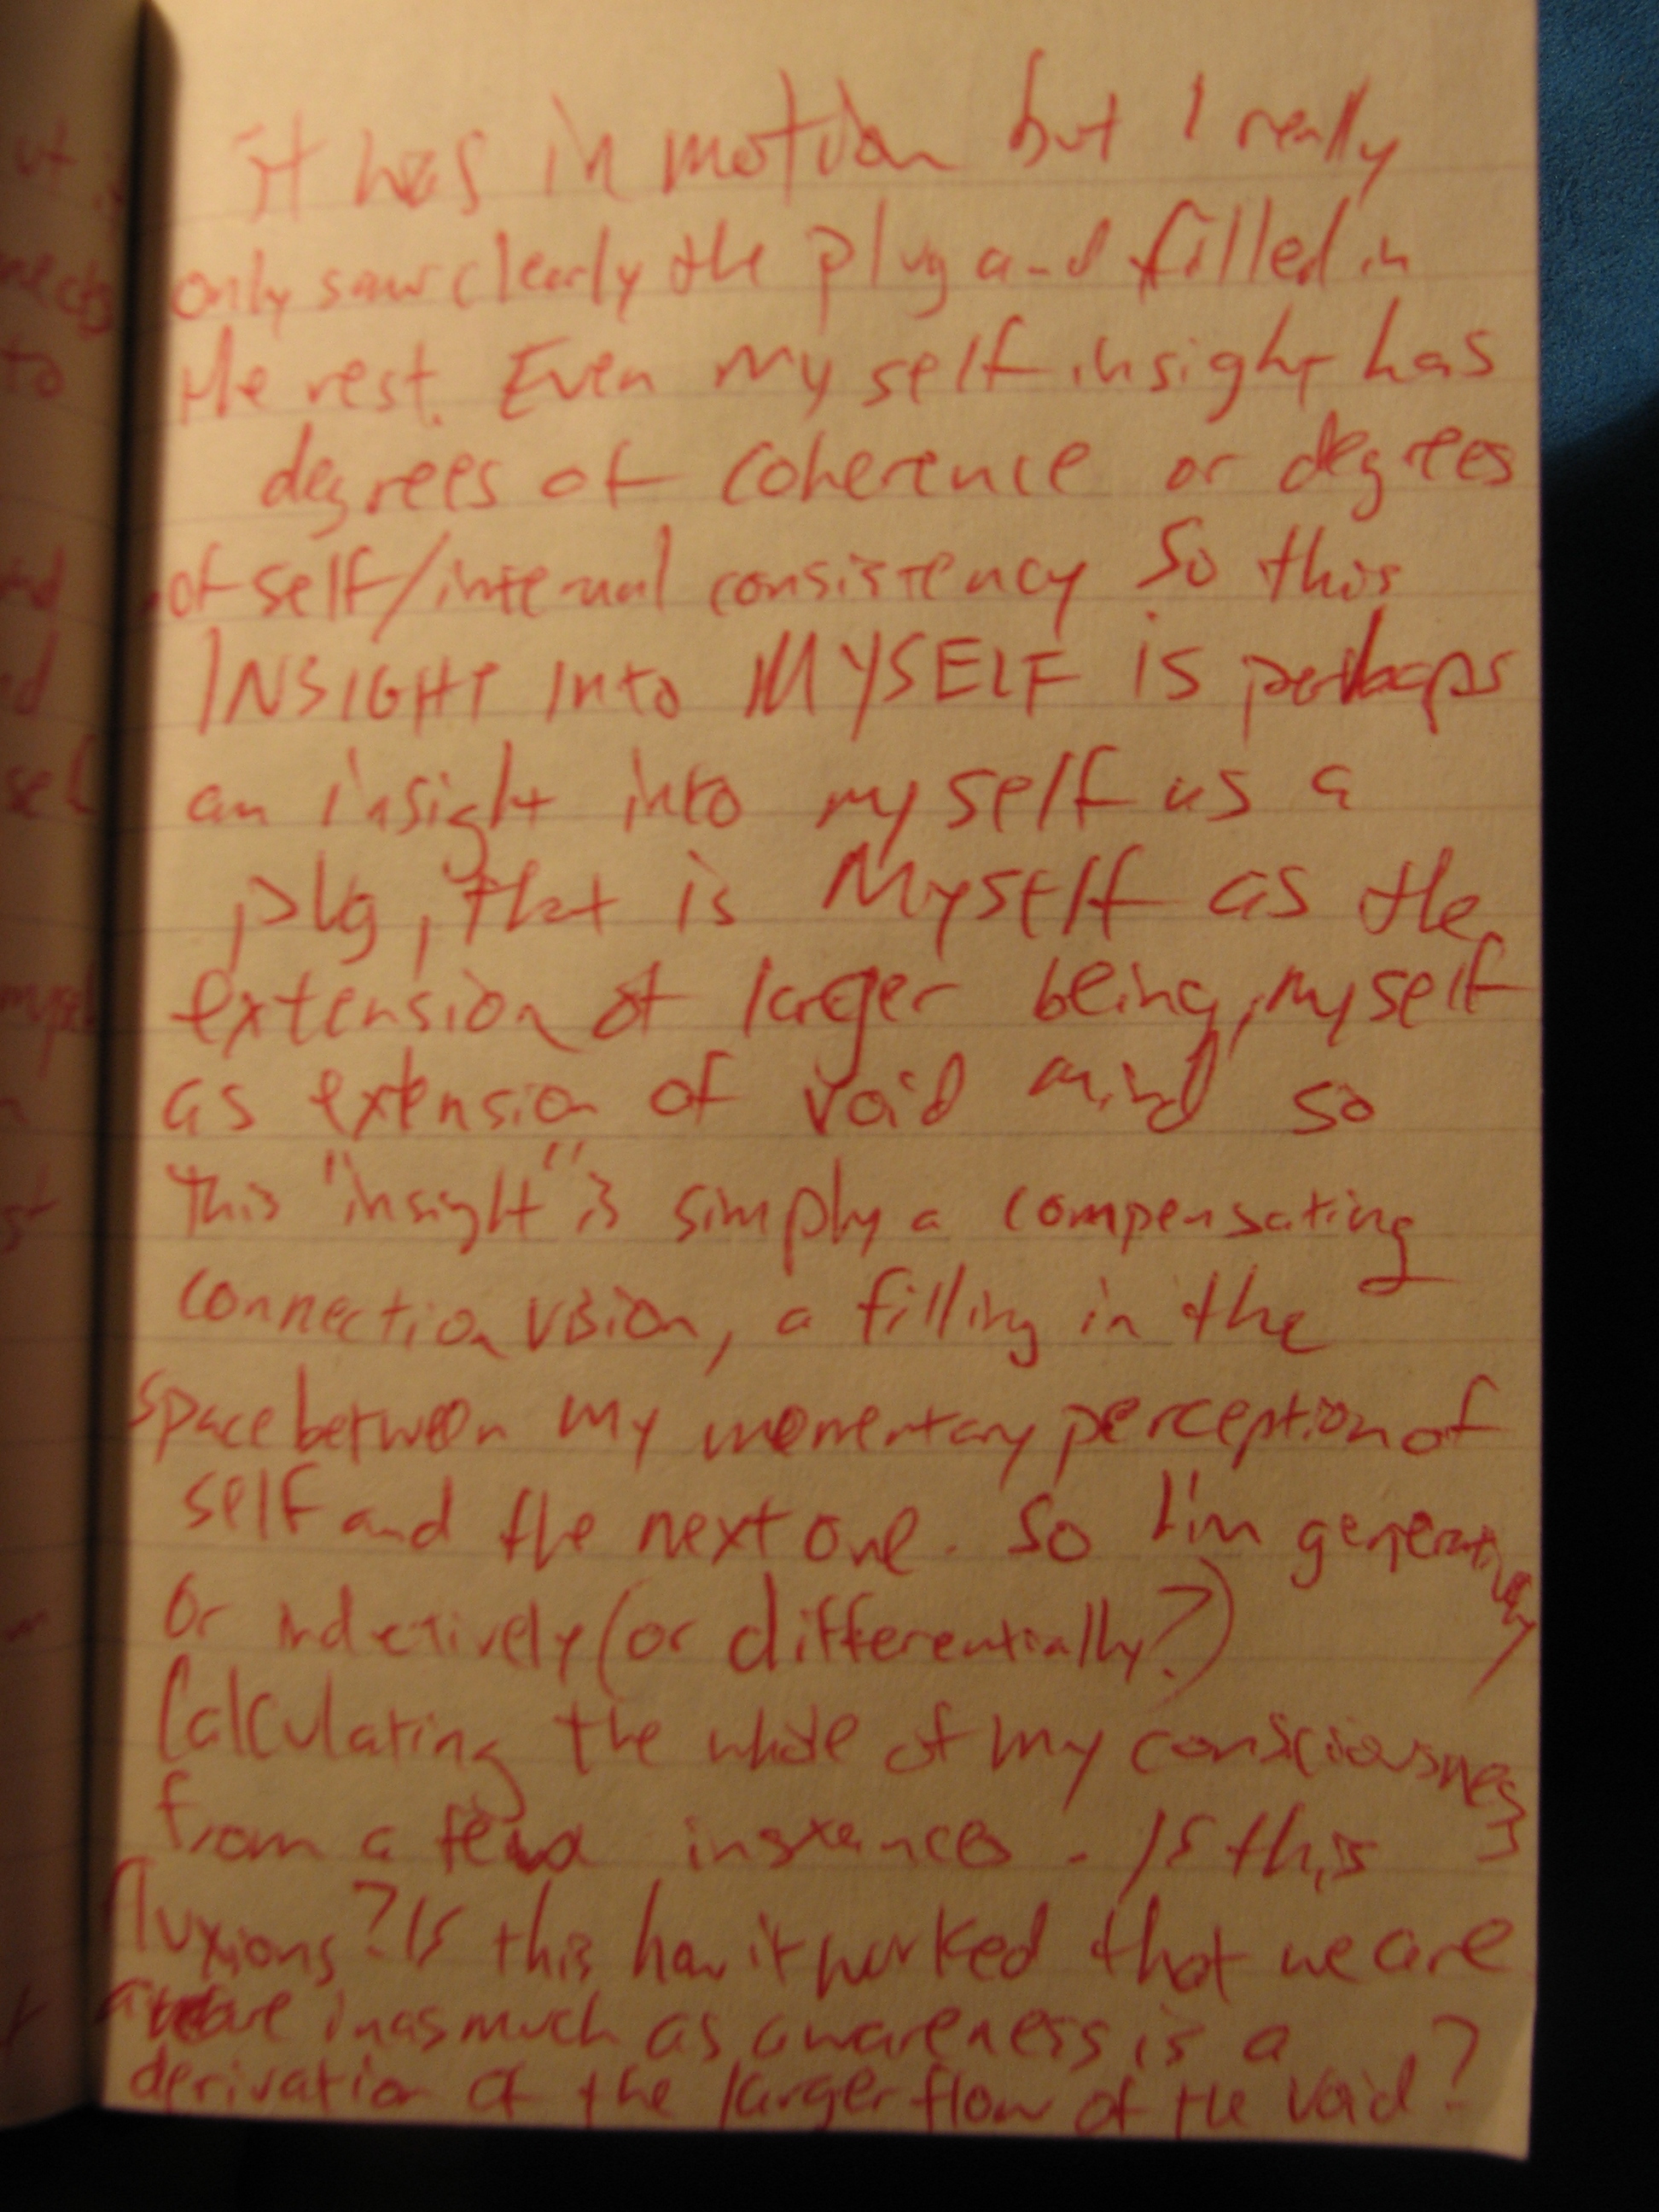 it was in motion but I really
only saw clearly the plug and filled in
the rest. Even my self insight has
degrees of coherence or degrees
of self/internal consistency So this
INSIGHT Into MYSELF is perhaps
an insight into myself as a
plug, that is Myself as the
extension of larger being, myself
as extension of void mind so
this "insight" is simply a compensating
connection vision, a filling in the
space between my momentary perception of
self and the next one. So I'm generatively
Or inductively (or differentially?)
Calculating the whole of my consciousness
from a few instances. Is this
fluxions? Is this how it worked that we are
aware inasmuch as awareness is a
derivation of the larger flow of the void?